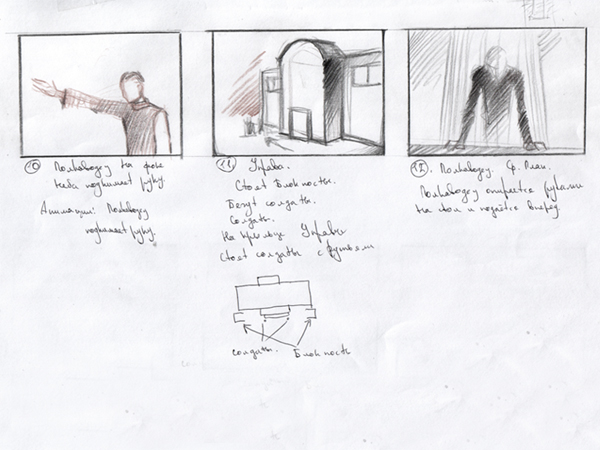 10 Полководец на фоне
неба поднимает руку.
Анимации: Полководец
поднимает руку.
11 Управа.
Стоят Блокпосты.
Бегут солдаты.
Солдаты.
На крыльце Управы
стоят солдаты с ружьями
солдаты. Блокпосты
12. Полководец. Ср. План.
Полководец опирается руками
на стол и подаётся вперед